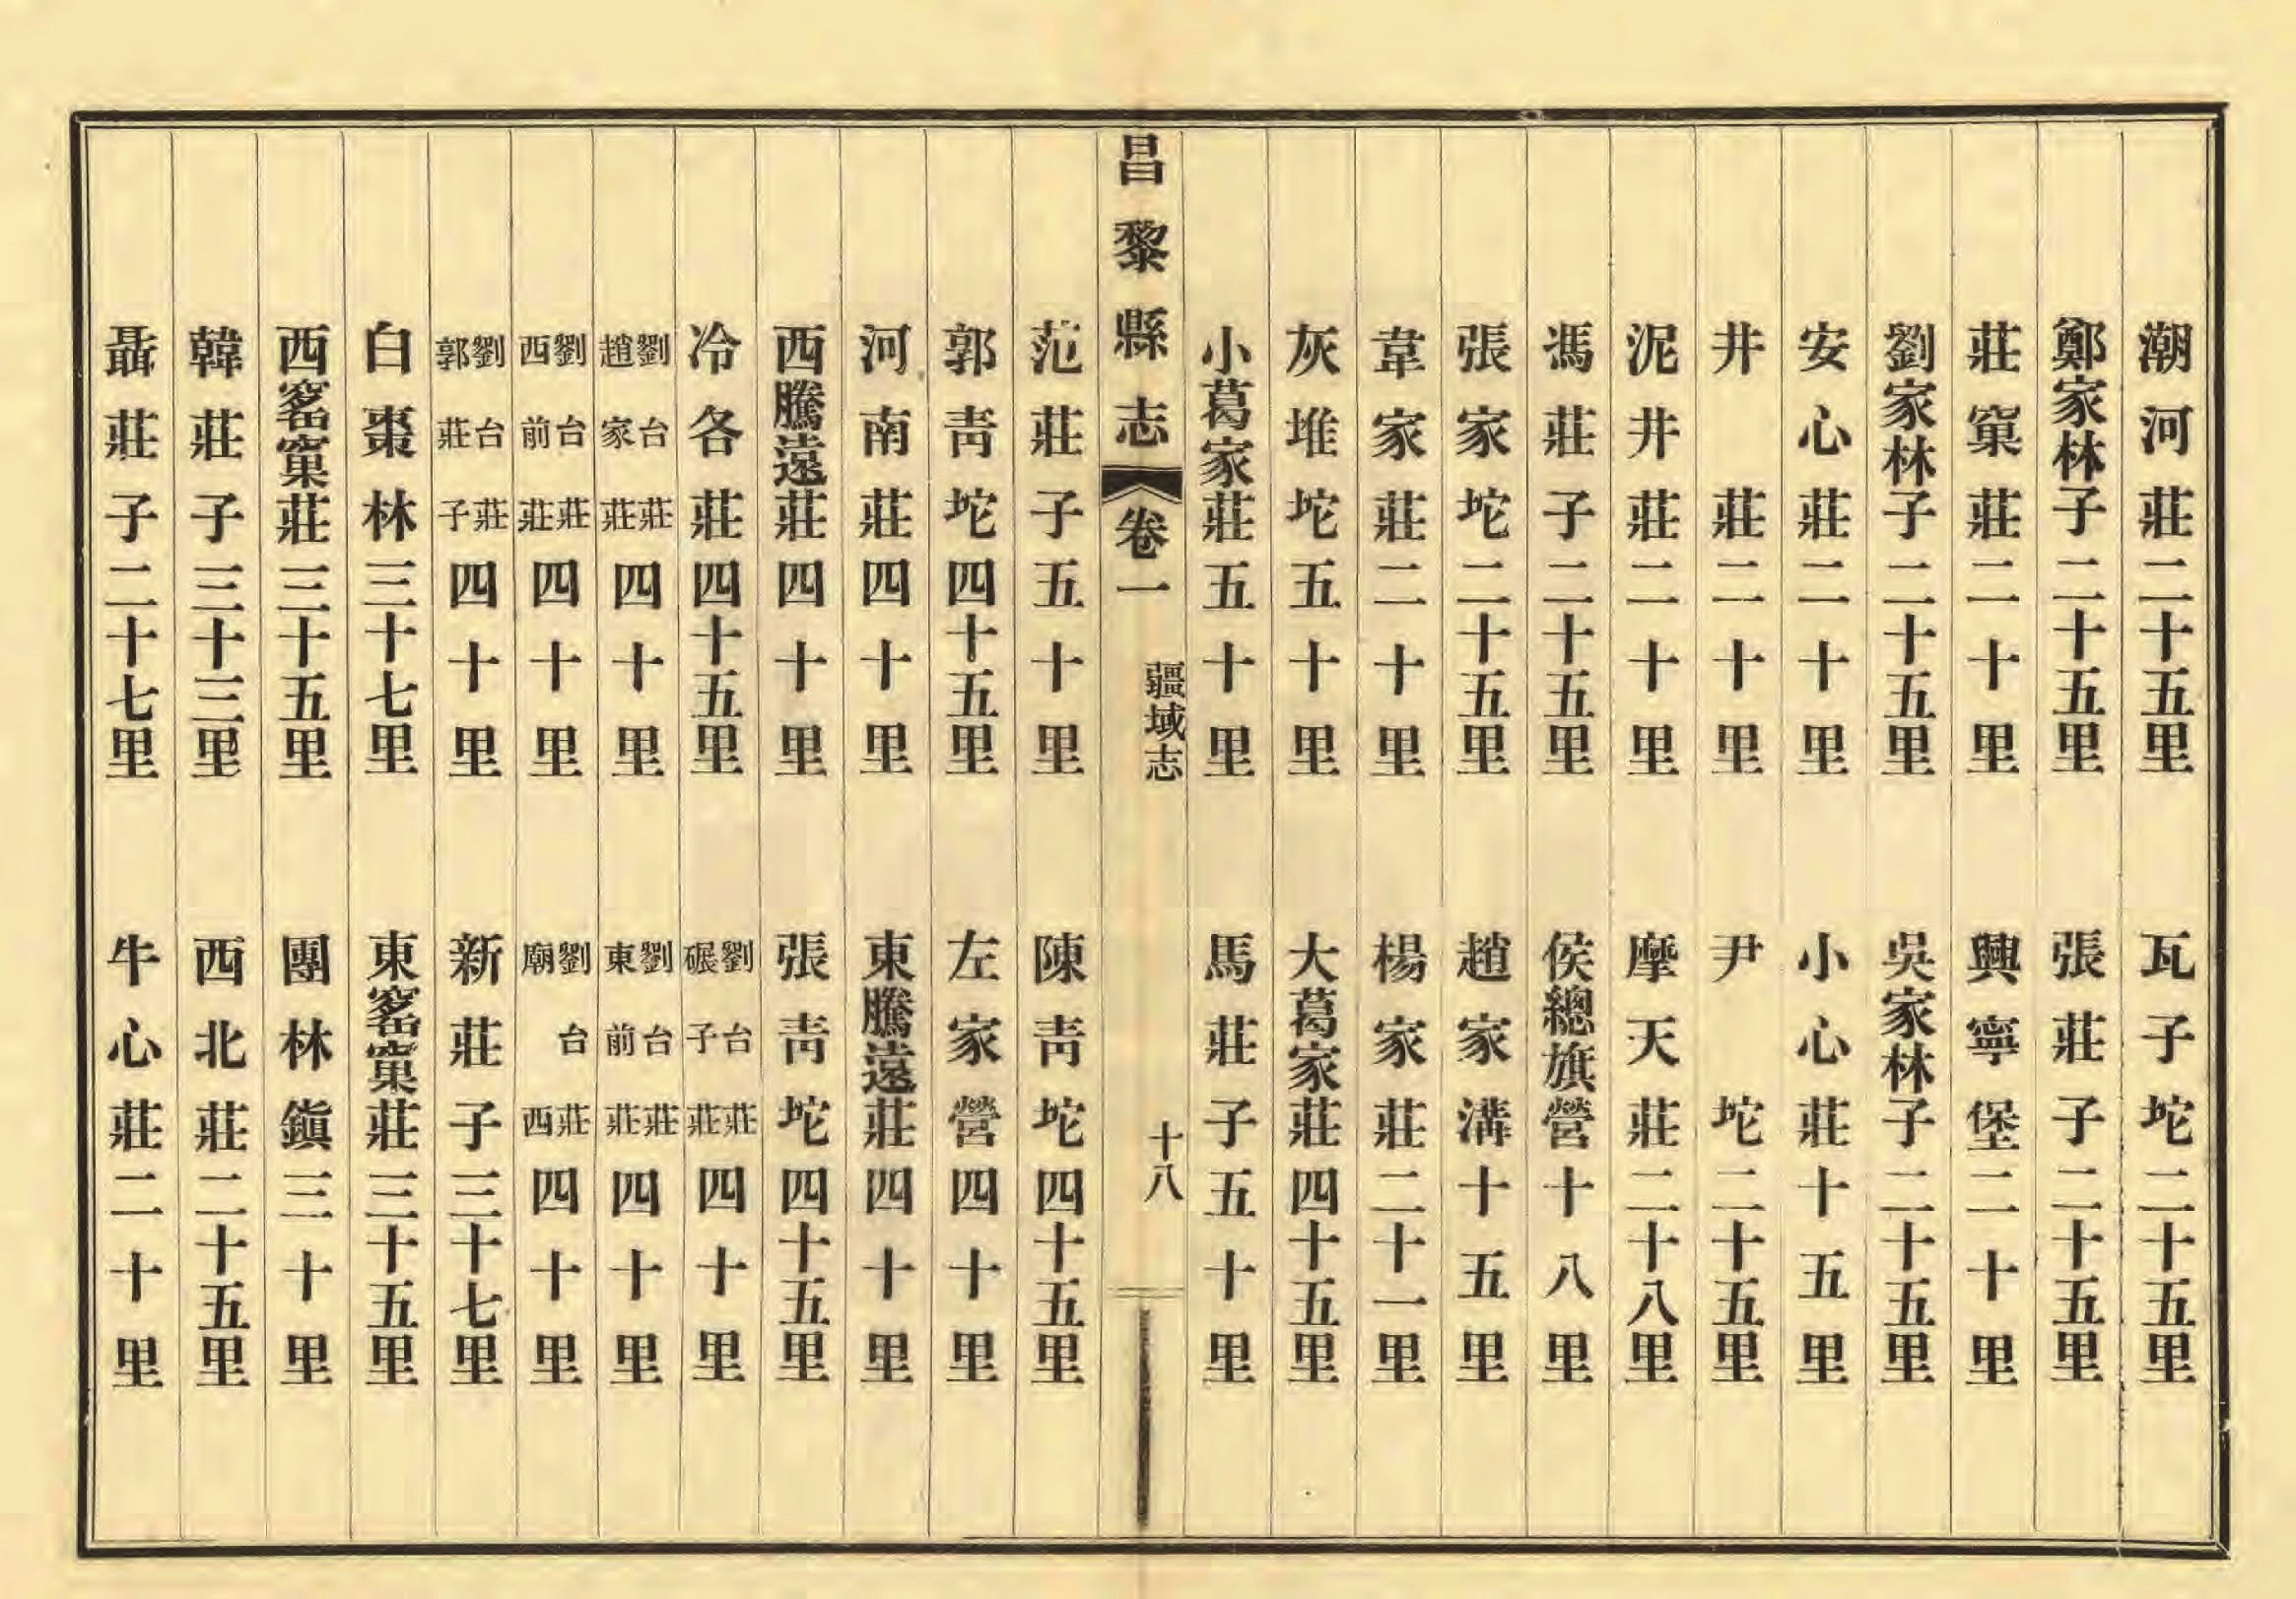 潮河莊二十五里　瓦子坨二十五里
鄭家林子二十五里　張莊子二十五里
莊窠莊二十里　興寧堡二十里
劉家林子二十五里　吳家林子二十五里
安心莊二十里　小心莊十五里
井莊二十里　尹坨二十五里
泥井莊二十里　摩天莊二十八里
馮莊子二十五里　侯總旗營十八里
張家坨二十五里　趙家溝十五里
韋家莊二十里　楊家莊二十一里
灰堆坨五十里　大葛家莊四十五里
小葛家莊五十里　馬莊子五十里
昌黎縣志　卷一　疆域志　十八
范莊子五十里　陳青坨四十五里
郭青坨四十五里　左家營四十里
河南莊四十里　東騰遠莊四十里
西騰遠莊四十里　張青坨四十五里
冷各莊四十五里　劉台莊碾子莊四十里
劉台莊趙家莊四十里　劉台莊東前莊四十里
劉台莊西前莊四十里　劉台莊廟西四十里
劉台莊郭莊子四十里　新莊子三十七里
白棗林三十七里　東窰窠莊三十五里
西窰窠莊三十五里　團林鎭三十里
韓莊子三十三里　西北莊二十五里
聶莊子二十七里　牛心莊二十里